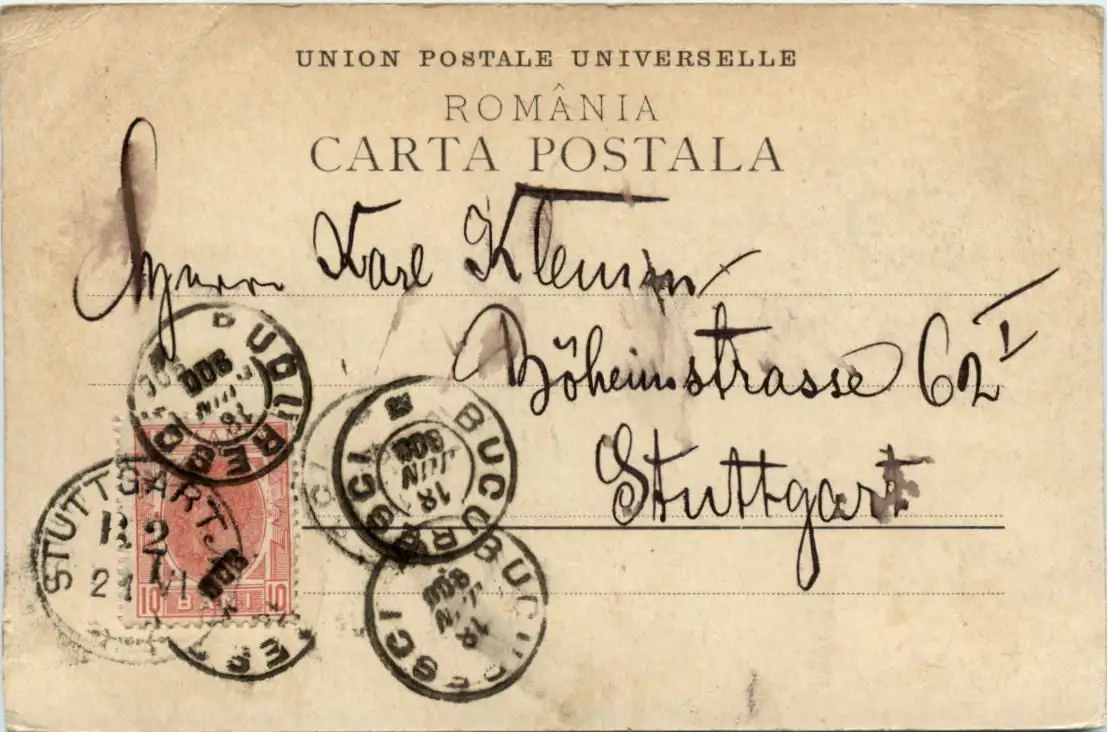 UNION POSTALE UNIVERSELLE
ROMÂNIA
CARTA POSTALA
Herrn Karl Klemm
Böheimstrasse 62 I
Stuttgart
BUCURESCI
18 JUN 900
BUCURESCI
18 JUN 900
BUCURESCI
18 JUN 900
STUTTGART
21 VI
10 BANI 10